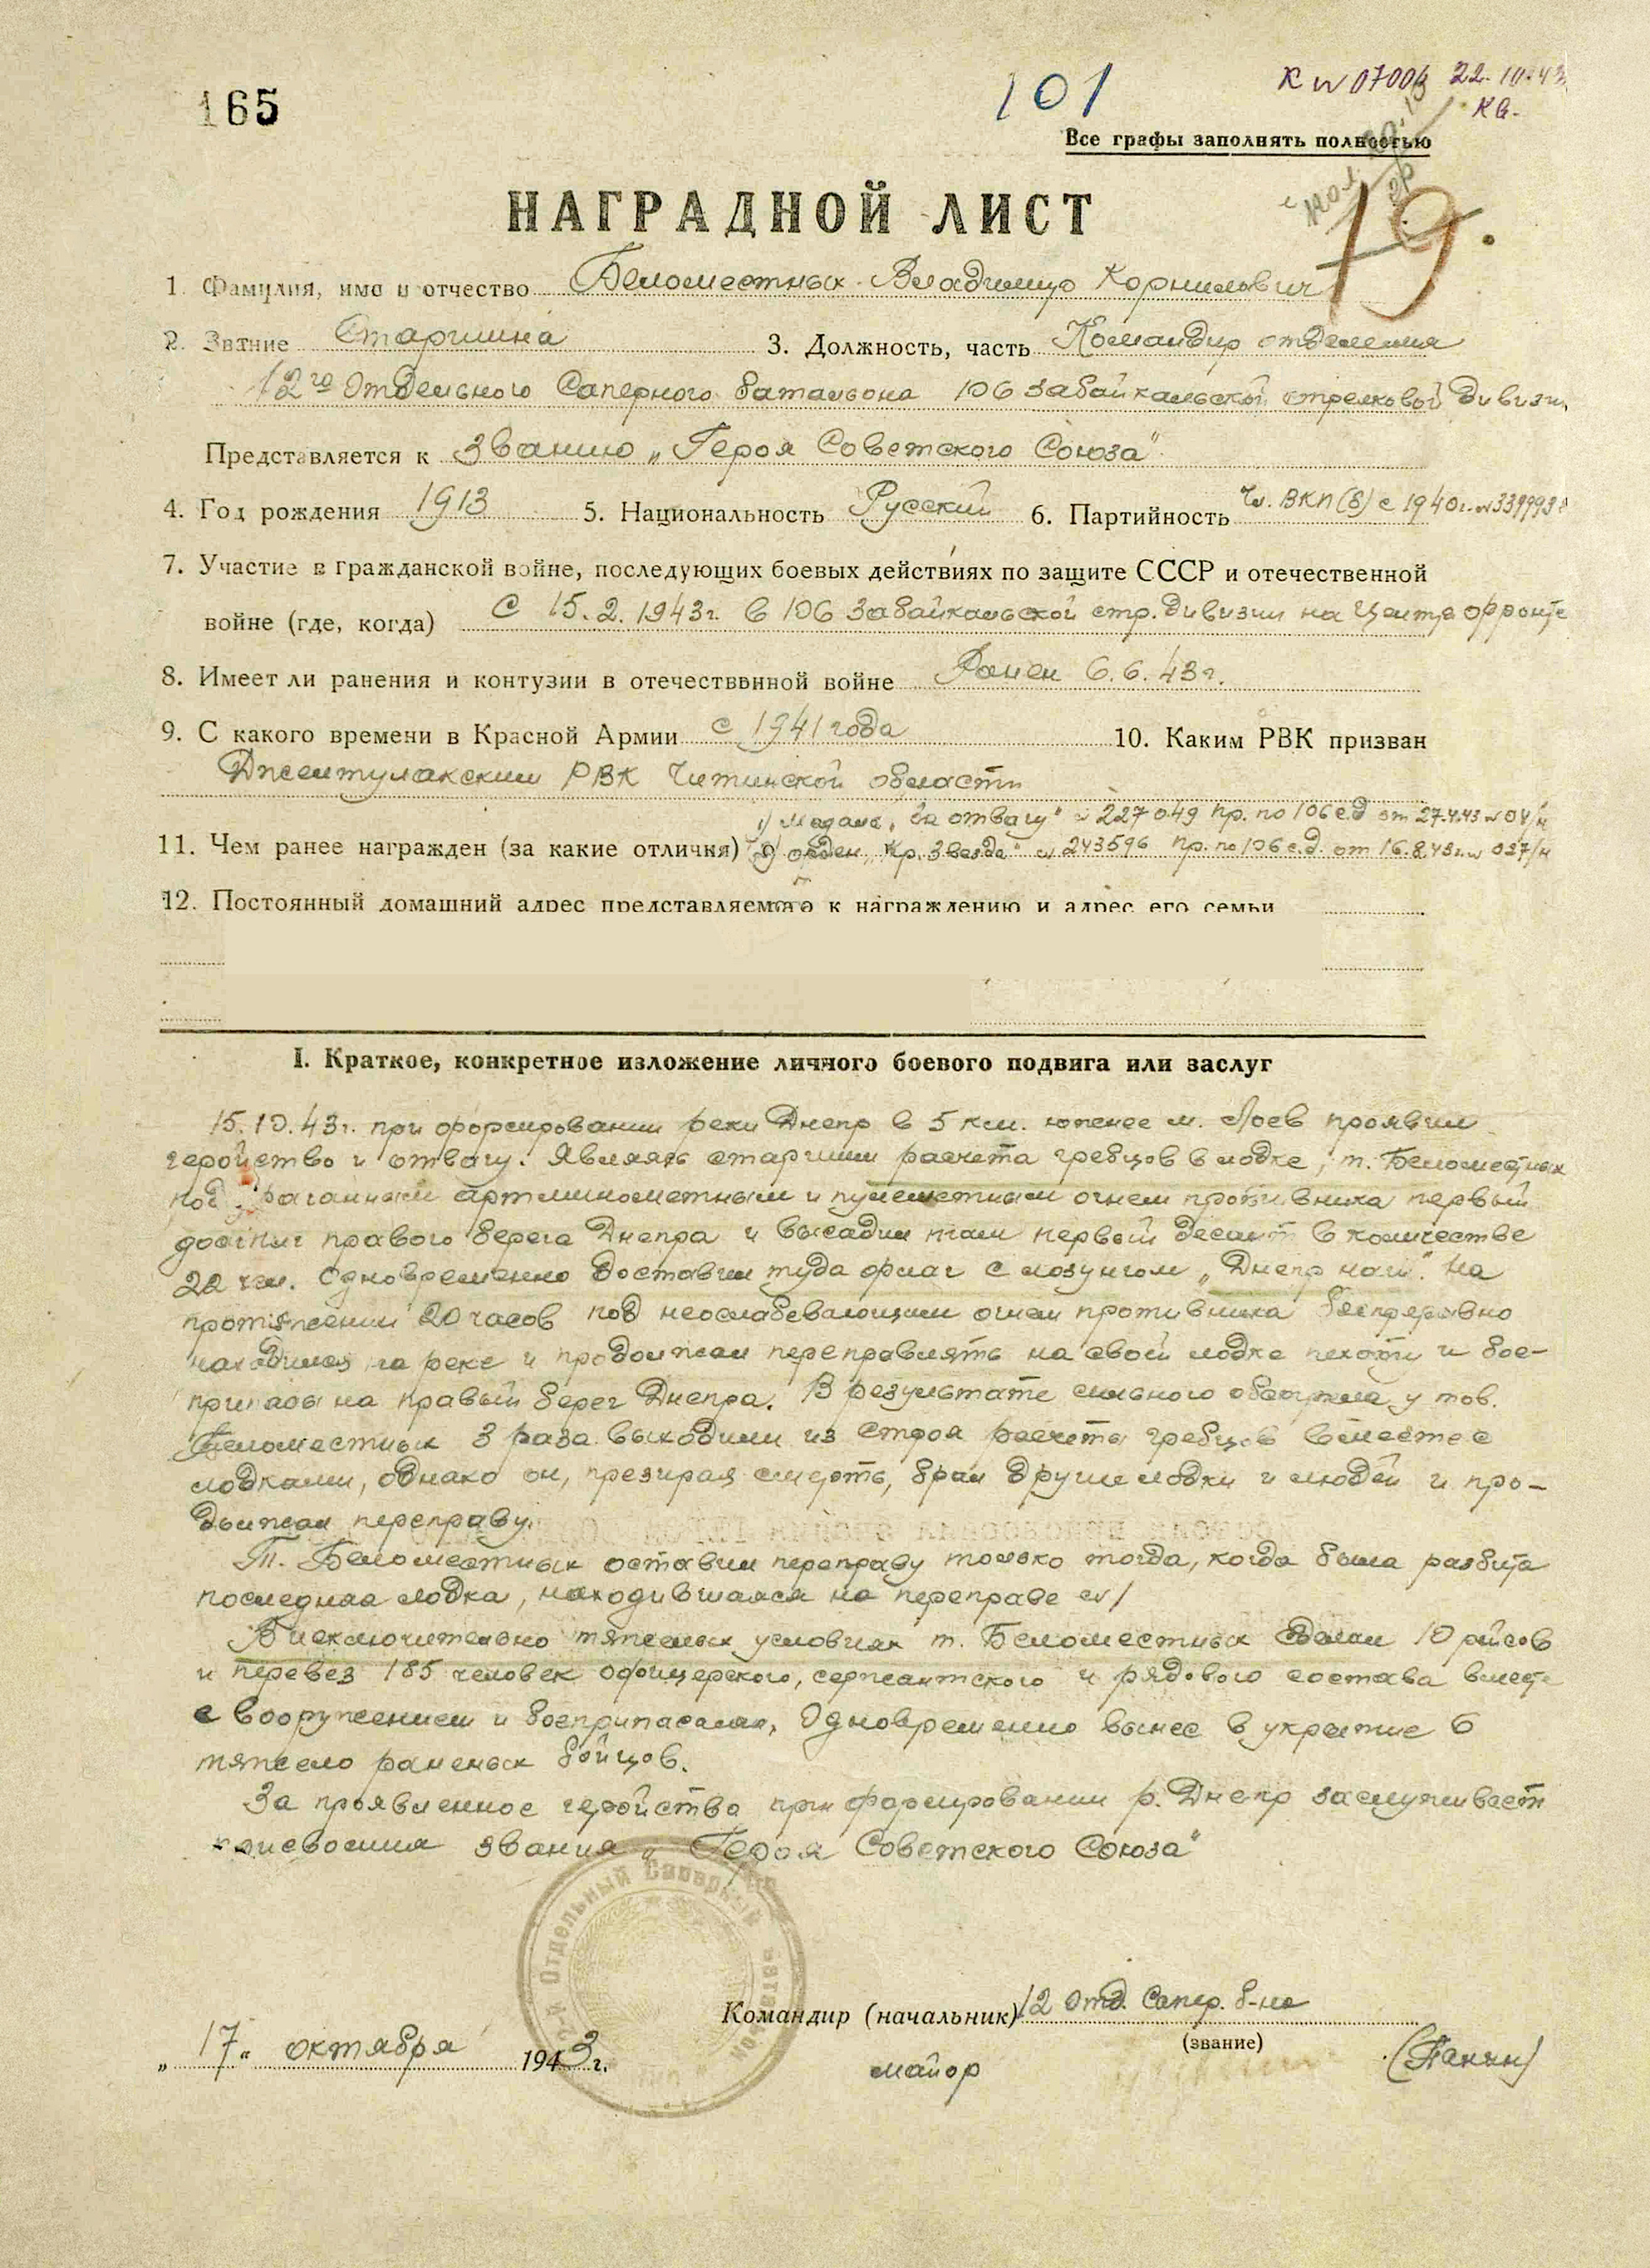 165
101
К № 07006 22.10.43
Кв.
Все графы заполнять полностью
19.
НАГРАДНОЙ ЛИСТ
1. Фамилия, имя и отчество Беломестных Владимир Корнилович
2. Звание Старшина 3. Должность, часть Командир отделения
12го Отдельного Саперного батальона 106 Забайкальской стрелковой дивизи
Представляется к званию „Героя Советского Союза"
4. Год рождения 1913 5. Национальность Русский 6. Партийность Чл. ВКП(б) с 1940г. №
7. Участие в гражданской войне, последующих боевых действиях по защите СССР и отечественной
войне (где, когда) С 15.2.1943г. в 106 Забайкальской стр. дивизии на Центр фронте
8. Имеет ли ранения и контузии в отечественной войне Ранен 6.6.43г.
9. С какого времени в Красной Армии с 1941 года 10. Каким РВК призван
Джелтулакским РВК Читинской области
1) Медаль „За отвагу" № 227049 пр. по 106 с.д от 27.4.43 № 04/н
11. Чем ранее награжден (за какие отличия) 2) орден „Кр. Звезда" № 243596 пр. по 106 с.д. от 16.8.43г. № 037/н
12. Постоянный домашний адрес представляемого к награждению и адрес его семьи
I. Краткое, конкретное изложение личного боевого подвига или заслуг
15.10.43г. при форсировании реки Днепр в 5 км. южнее м. Лоев проявил
геройство и отвагу. Являясь старшим расчета гребцов в лодке, т. Беломестных
под ураганным артминометным и пулеметным огнем противника первый
достиг правого берега Днепра и высадил там первый десант в количестве
22 чел. Одновременно доставил туда флаг с лозунгом „Днепр наш". На
протяжении 20 часов под неослабевающим огнем противника беспрерывно
находился на реке и продолжал переправлять на своей лодке пехоту и бое-
припасы на правый берег Днепра. В результате сильного обстрела у тов.
Беломестных 3 раза выходили из строя расчеты гребцов вместе с
лодками, однако он, презирая смерть, брал другие лодки и людей и про-
должал переправу.
Т. Беломестных оставил переправу только тогда, когда была разбита
последняя лодка, находившаяся на переправе № 1
В исключительно тяжелых условиях т. Беломестных сделал 10 рейсов
и перевез 185 человек офицерского, сержантского и рядового состава вместе
с вооружением и боеприпасами, Одновременно вынес в укрытие 6
тяжело раненых бойцов.
За проявленное геройство при форсировании р. Днепр заслуживает
присвоения звания „Героя Советского Союза"
Отдельный Саперный батальон
Командир (начальник) 12 Отд. Сапер. б-на
(звание)
„17" октября 1943 г.
майор (Панин)